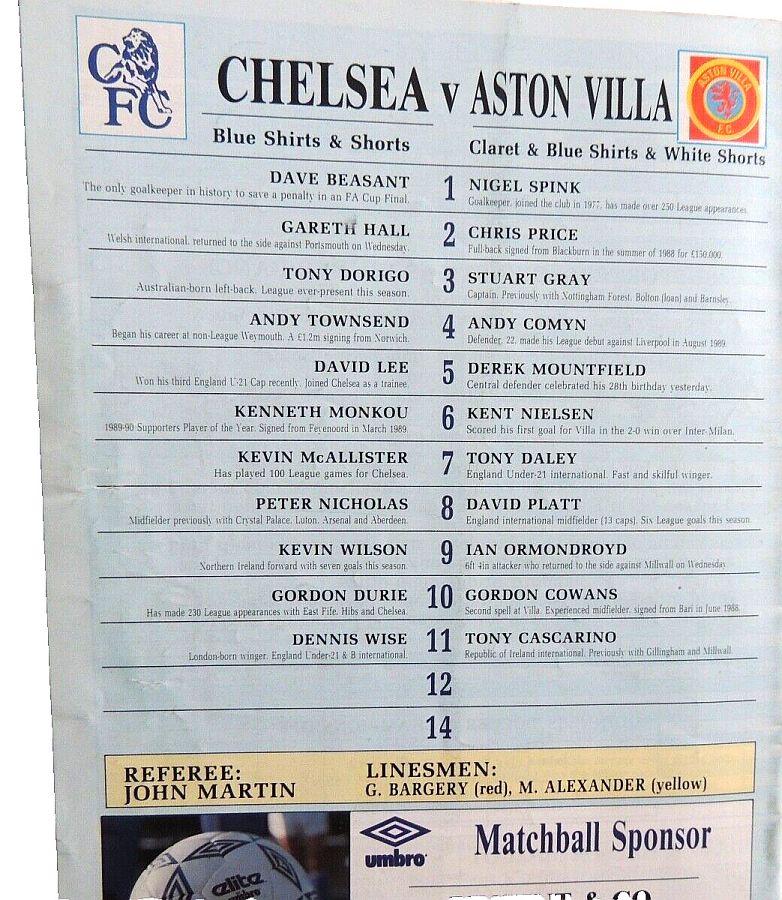 CFC
CHELSEA v ASTON VILLA
ASTON VILLA
F.C.
Blue Shirts & Shorts
Claret & Blue Shirts & White Shorts
DAVE BEASANT 1 NIGEL SPINK
The only goalkeeper in history to save a penalty in an FA Cup Final. Goalkeeper, joined the club in 1977, has made over 250 League appearances.
GARETH HALL 2 CHRIS PRICE
Welsh international, returned to the side against Portsmouth on Wednesday. Full-back signed from Blackburn in the summer of 1988 for £150,000.
TONY DORIGO 3 STUART GRAY
Australian-born left-back. League ever-present this season. Captain. Previously with Nottingham Forest, Bolton (loan) and Barnsley.
ANDY TOWNSEND 4 ANDY COMYN
Began his career at non-League Weymouth. A £1.2m signing from Norwich. Defender, 22, made his League debut against Liverpool in August 1989.
DAVID LEE 5 DEREK MOUNTFIELD
Won his third England U-21 Cap recently. Joined Chelsea as a trainee. Central defender celebrated his 28th birthday yesterday.
KENNETH MONKOU 6 KENT NIELSEN
1989-90 Supporters Player of the Year. Signed from Feyenoord in March 1989. Scored his first goal for Villa in the 2-0 win over Inter-Milan.
KEVIN McALLISTER 7 TONY DALEY
Has played 100 League games for Chelsea. England Under-21 international. Fast and skilful winger.
PETER NICHOLAS 8 DAVID PLATT
Midfielder previously with Crystal Palace, Luton, Arsenal and Aberdeen. England international midfielder (13 caps). Six League goals this season.
KEVIN WILSON 9 IAN ORMONDROYD
Northern Ireland forward with seven goals this season. 6ft 4in attacker who returned to the side against Millwall on Wednesday.
GORDON DURIE 10 GORDON COWANS
Has made 230 League appearances with East Fife, Hibs and Chelsea. Second spell at Villa. Experienced midfielder, signed from Bari in June 1988.
DENNIS WISE 11 TONY CASCARINO
London-born winger. England Under-21 & B international. Republic of Ireland international. Previously with Gillingham and Millwall.
12
14
REFEREE: LINESMEN:
JOHN MARTIN G. BARGERY (red), M. ALEXANDER (yellow)
elite
umbro
Matchball Sponsor
& CO